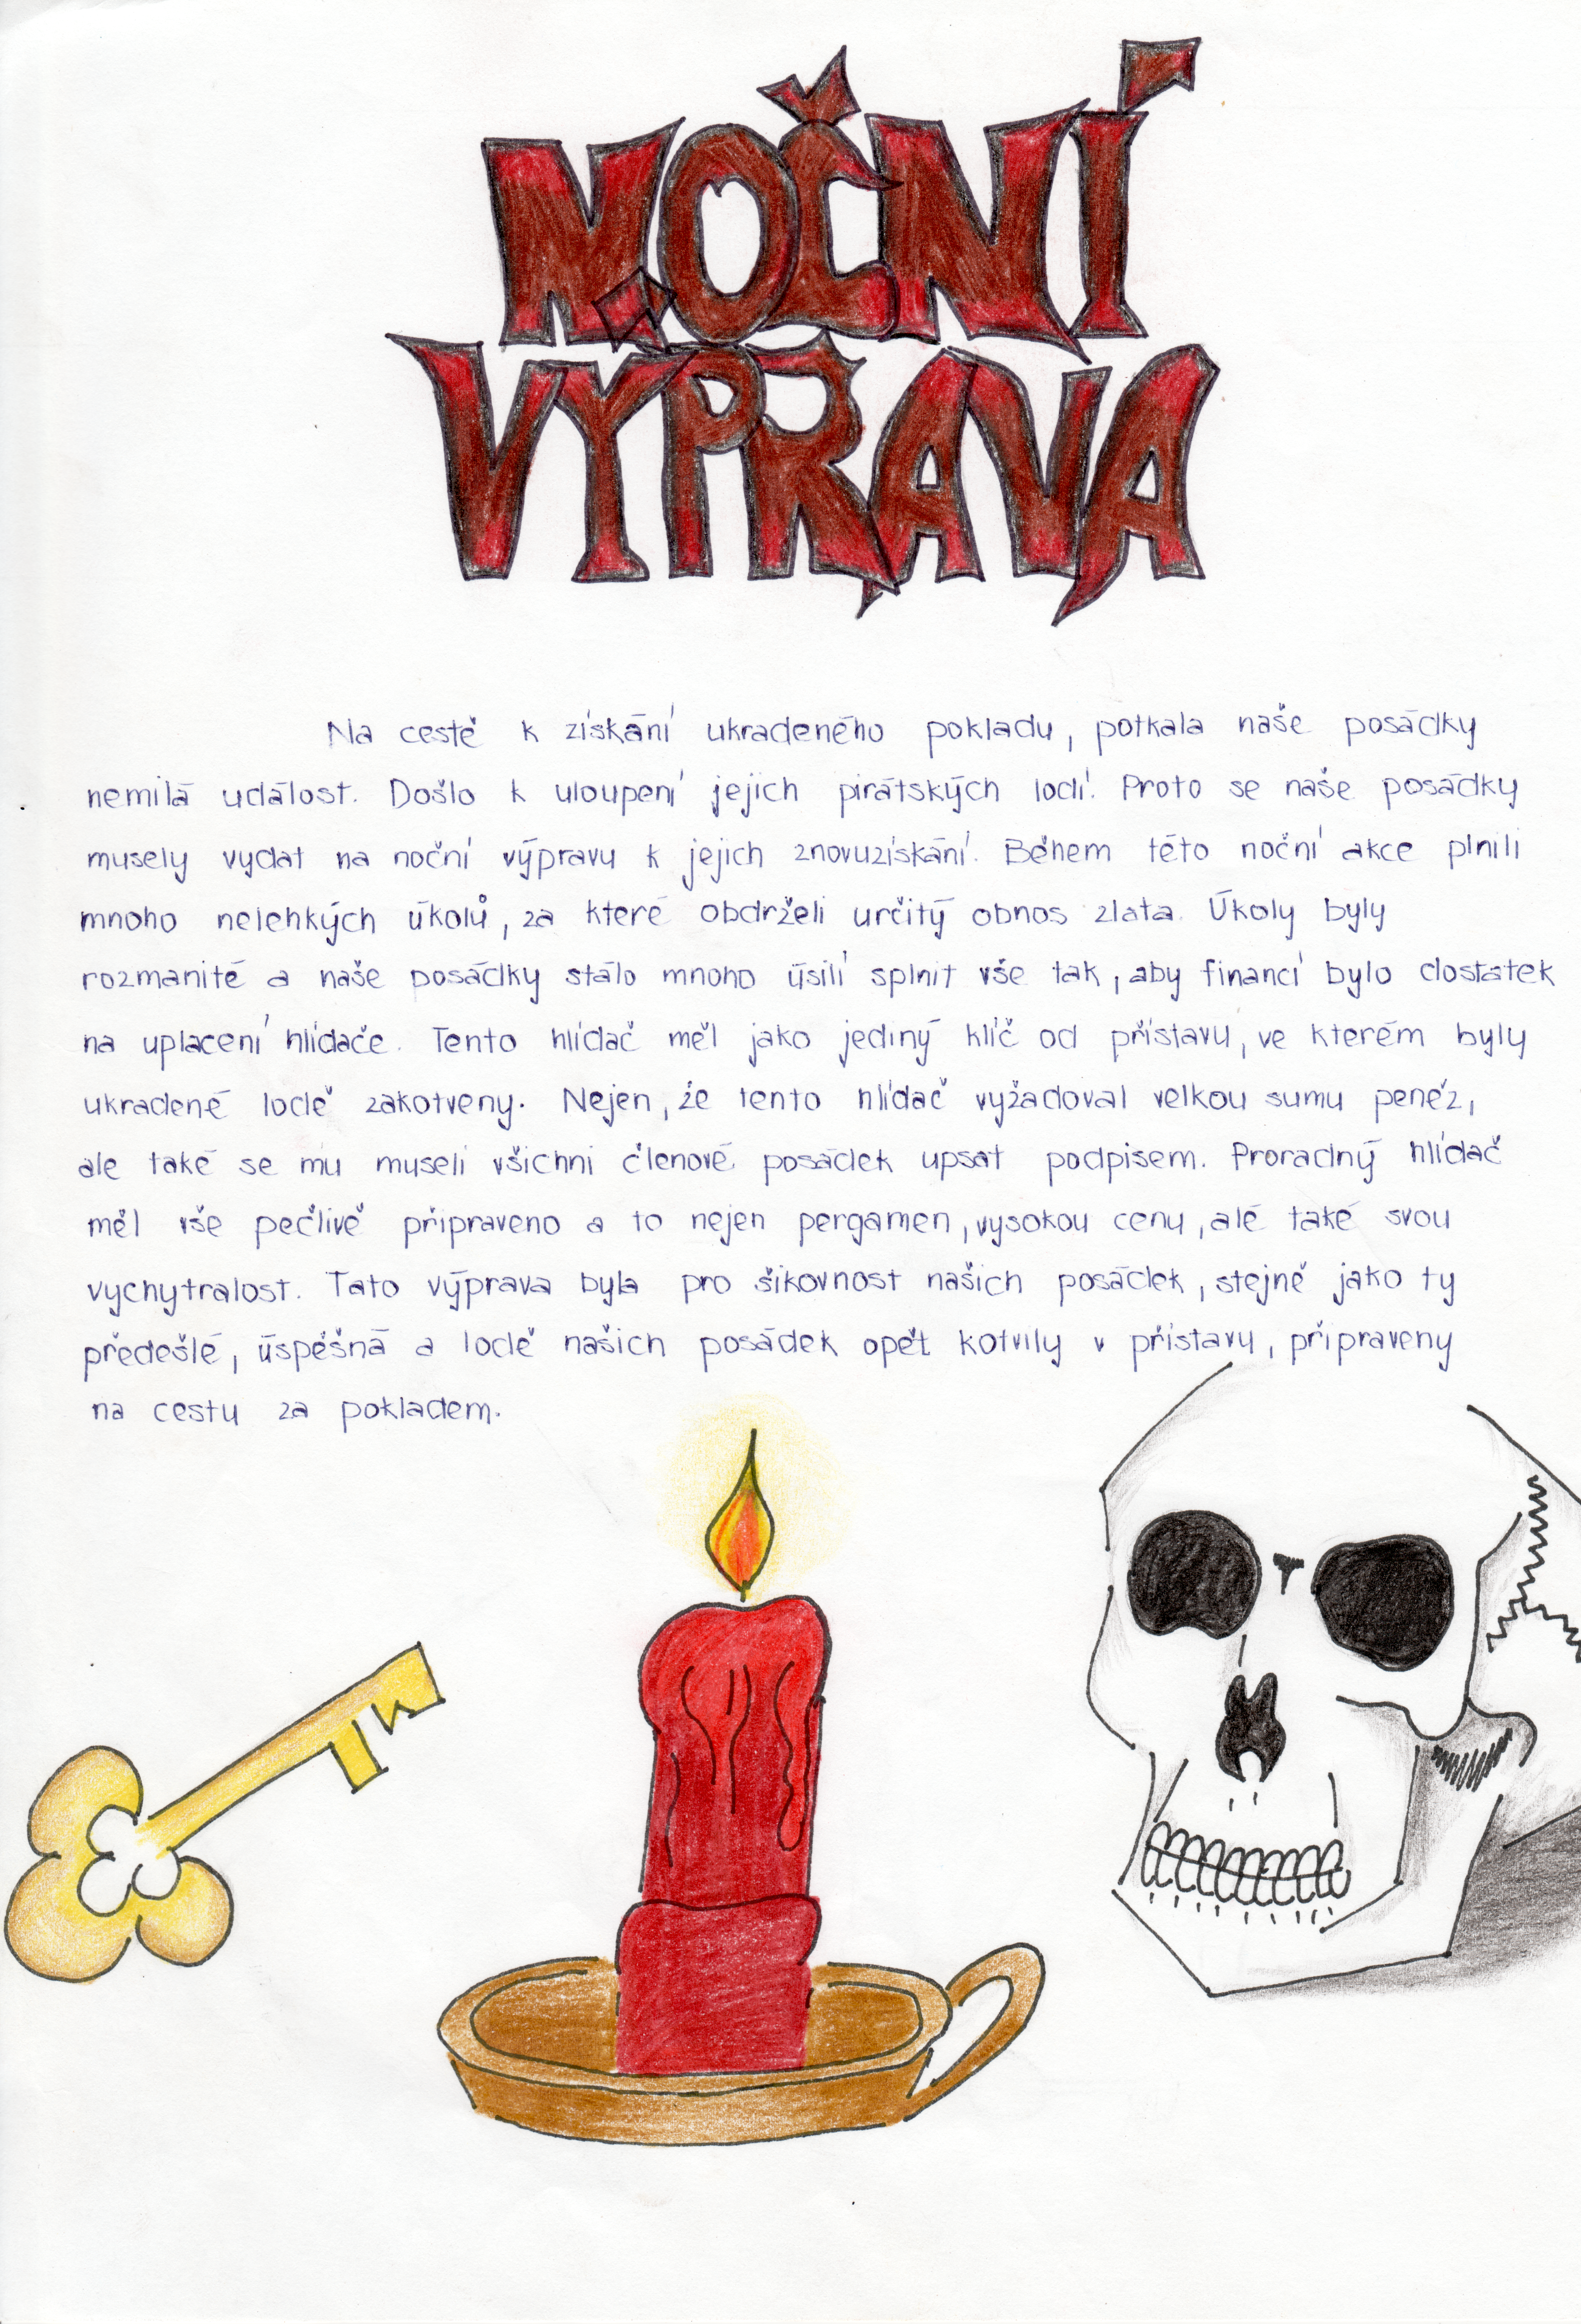 NOČNÍ
VÝPRAVA
Na cestě k získání ukradeného pokladu, potkala naše posádky
nemilá událost. Došlo k uloupení jejich pirátských lodí. Proto se naše posádky
musely vydat na noční výpravu k jejich znovuzískání. Během této noční akce plnili
mnoho nelehkých úkolů, za které obdrželi určitý obnos zlata. Úkoly byly
rozmanité a naše posádky stálo mnoho úsilí splnit vše tak, aby financí bylo dostatek
na uplacení hlídače. Tento hlídač měl jako jediný klíč od přístavu, ve kterém byly
ukradené lodě zakotveny. Nejen, že tento hlídač vyžadoval velkou sumu peněz,
ale také se mu museli všichni členové posádek upsat podpisem. Proradný hlídač
měl vše pečlivě připraveno a to nejen pergamen, vysokou cenu, alé také svou
vychytralost. Tato výprava byla pro šikovnost našich posádek, stejně jako ty
předešlé, úspěšná a lodě našich posádek opět kotvily v přístavu, připraveny
na cestu za pokladem.